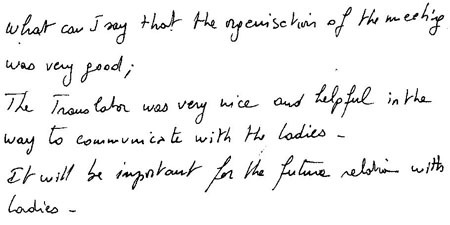 What can I say that the organisation of the meeting
was very good;
The Translator was very nice and helpful in the
way to communicate with the ladies -
It will be important for the future relation with
ladies -